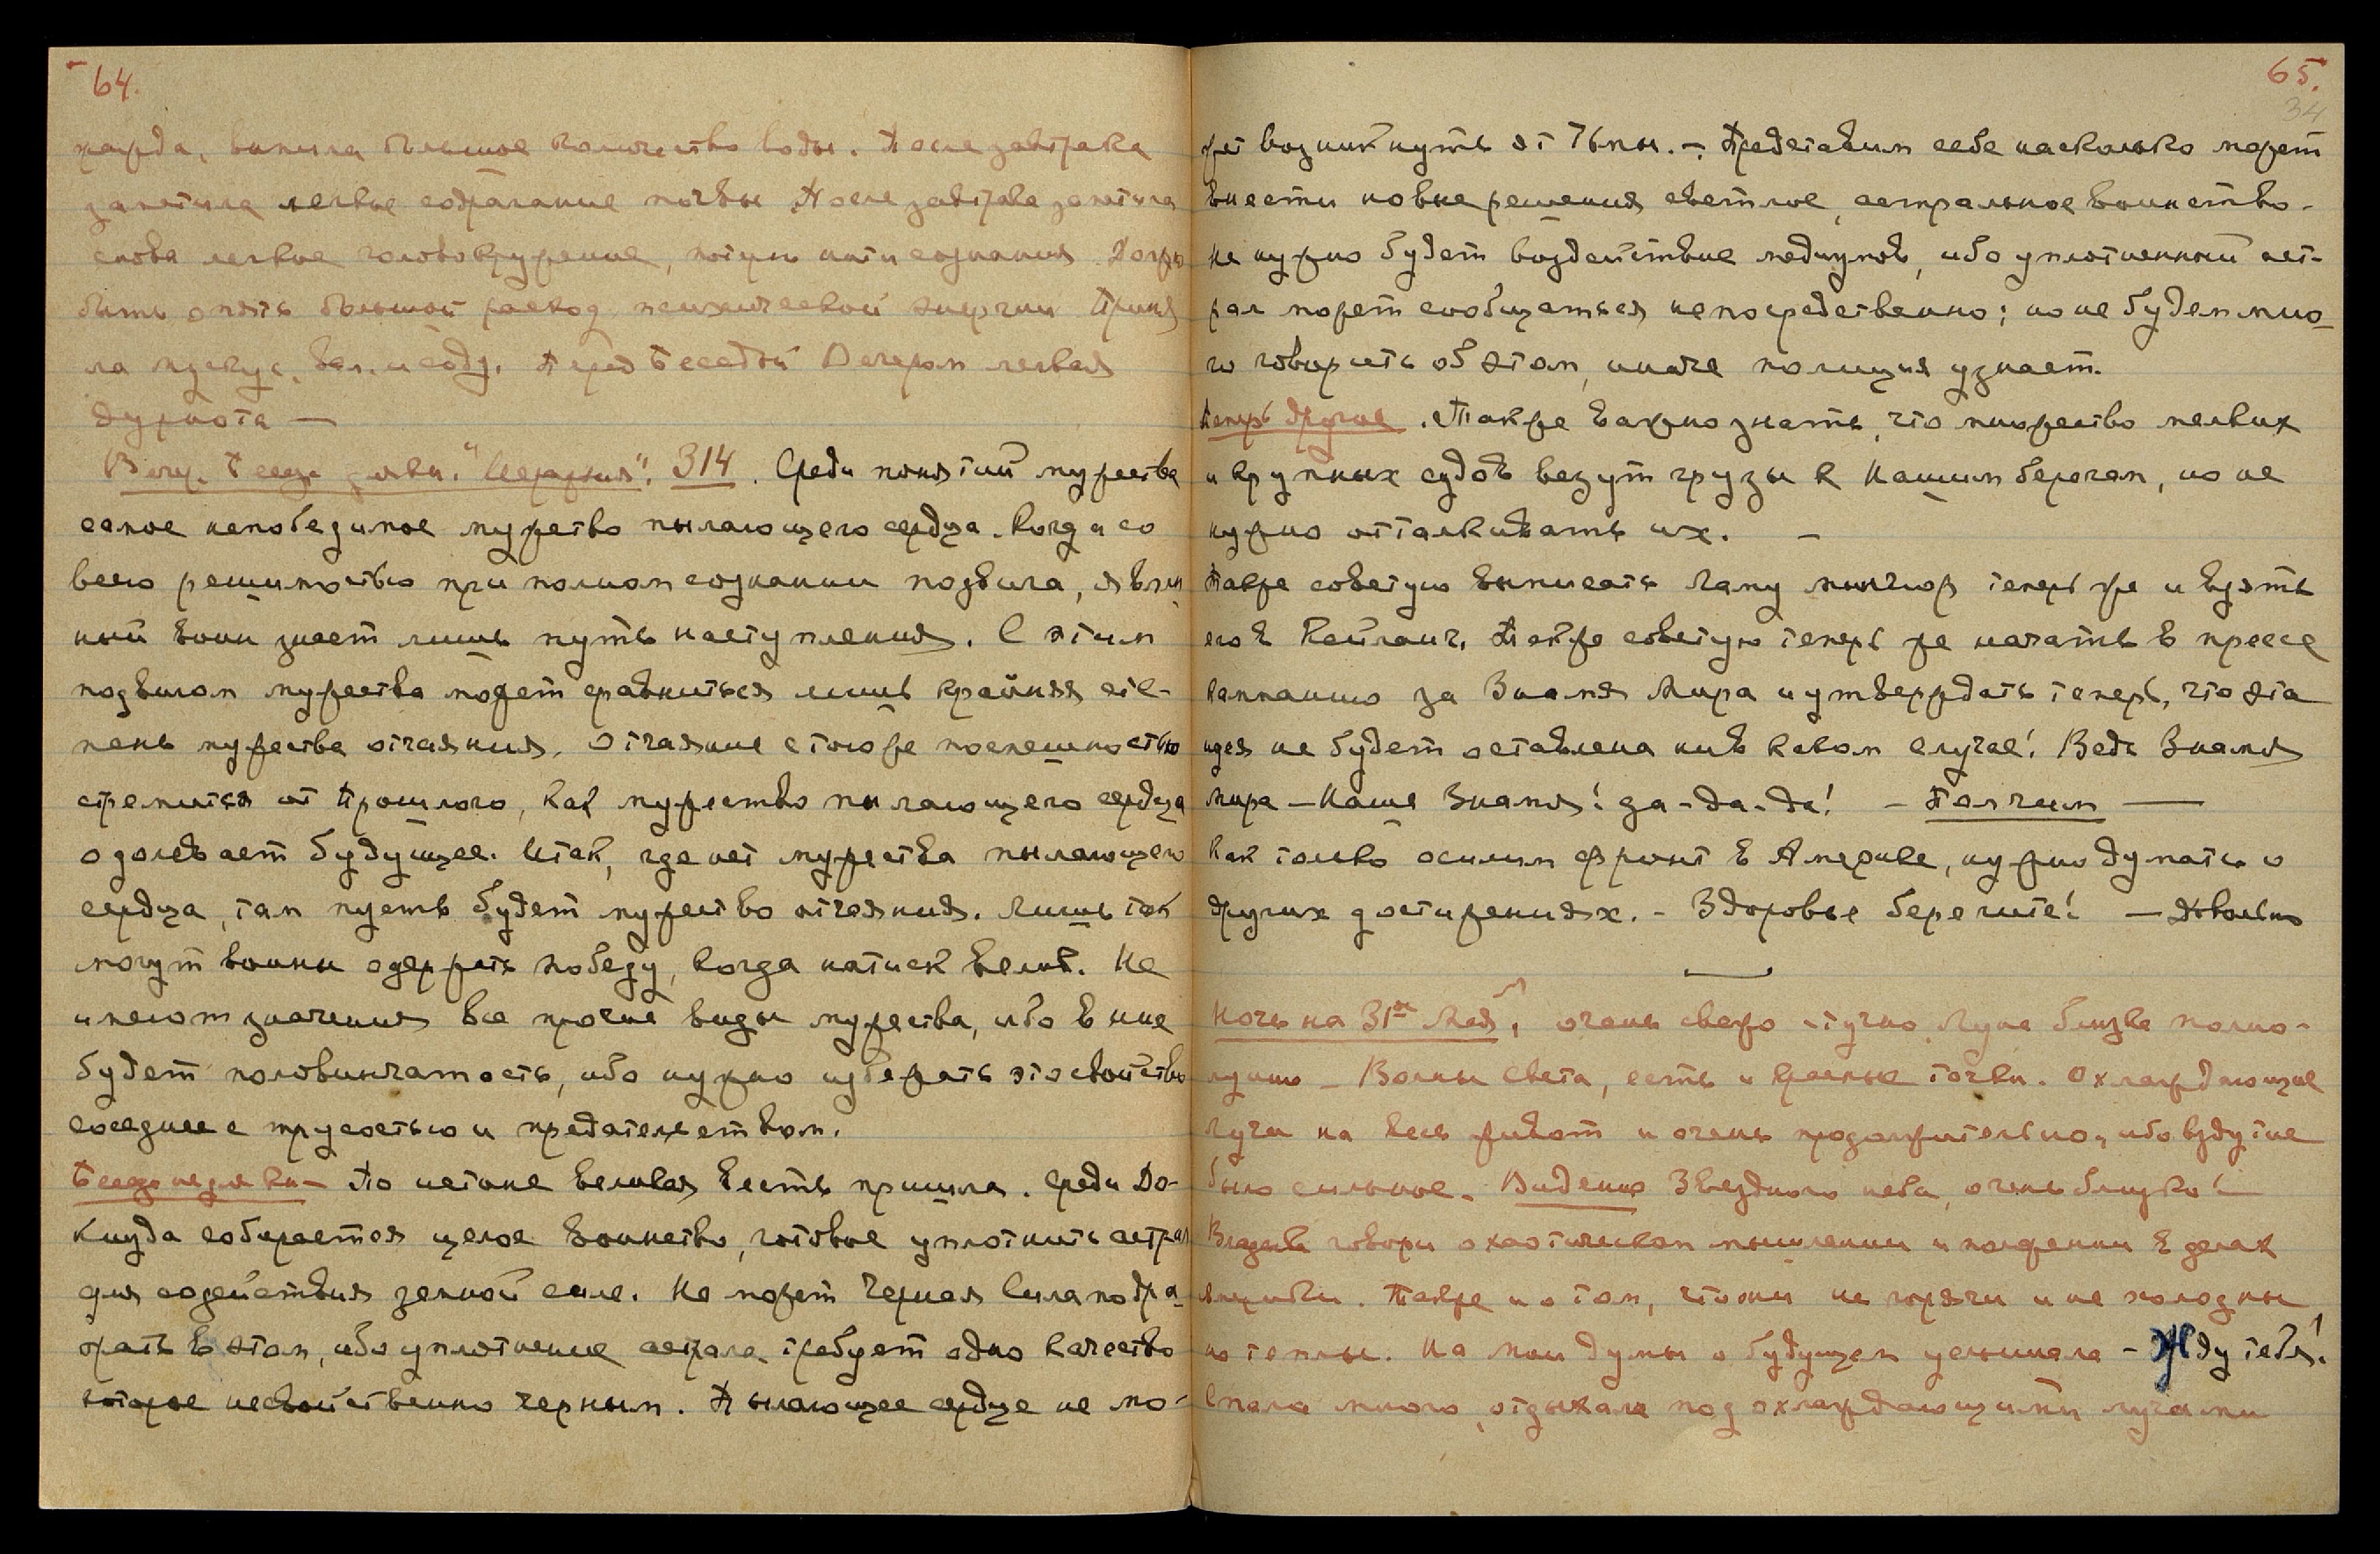 64.
жажда, выпила большое количество воды. После завтрака
заметила легкое содрагание почвы. После завтрака заметила
снова легкое головокружение, потери нити сознания. Долж
быть опять большой расход психической энергии. Приня
ла мускус, вал. и соду. Перед Беседой Вечером легкая
дурнота —
Веч. Бесед. "Иерархия". 314. Среди понятий мужества
самое непобедимое мужество пылающего сердца. Когда со
всею решимостью при полном сознании подвига, явлен
ный воин знает лишь путь наступления. С этим
подвигом мужества может сравниться лишь крайняя сте-
пень мужества отчаяния. Отчаяние с тою же поспешностью
стремится от прошлого, как мужество пылающего сердца
одолевает будущее. Итак, где нет мужества пылающего
сердца, там пусть будет мужество отчаяния. Лишь так
могут воины одержать победу, когда натиск велик. Не
имеют значения все прочие виды мужества, ибо в них
будет половинчатость, ибо нужно избежать это свойство
соседнее с трусостью и предательством.
Беседа не для кн — По истине великая весть пришла. Среди До-
киуда собирается целое воинство, готовое уплотнить астрал
для содействия земной силе. Не может Черная Сила подра-
жать в этом, ибо уплотнение астрала требует одно качество
которое несвойственно черным. Пылающее сердце не мо-
65.
34
жет возникнуть от Тьмы. — Представим себе насколько может
внести новые решения светлое, астральное воинство.
Не нужно будет воздействие медиумов, ибо уплотненный аст-
рал может сообщаться непосредственно; но не будем мно-
го говорить об этом, иначе полиция узнает.
Теперь другое. Также важно знать, что множество мелких
и крупных судов везут грузы к Нашим берегам, но не
нужно отталкивать их. —
Также советую выписать Ламу Мингюр теперь же и взять
его в Кейланг. Также советую теперь же начать в прессе
кампанию за Знамя Мира и утверждать теперь, что эта
идея не будет оставлена ни в каком случае! Ведь Знамя
Мира — Наше Знамя! да-да-да! — Помолчим —
Как только осилим фронт в Америке, нужно думать о
других достижениях. — Здоровье берегите! — Довольно
—
Ночь на 31ое Мая, очень свежо и тучно. Луна близка полно-
лунию — Волны света, есть и красные точки. Охлаждающие
лучи на весь живот и очень продолжительно, ибо вздутие
было сильное. Видение Звездного неба, очень близко!
Владыка говорил о хаотическом мышлении и положении в делах
Америки. Также и о том, что они не горячи и не холодны
но теплы. На мои думы о будущем услышала — Жду тебя!
Спала много, отдыхала под охлаждающими лучами